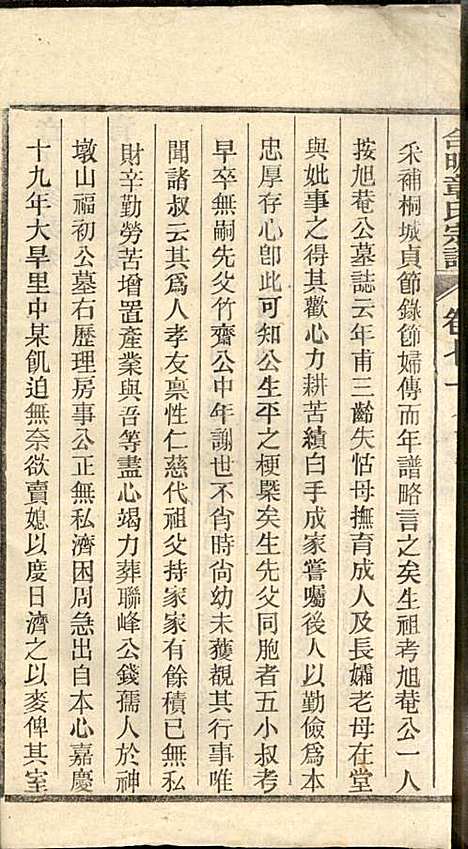 合明章氏宗譜 卷七十
采補桐城貞節錄節婦傳而年譜略言之矣生祖考旭菴公一人
按旭菴公墓誌云年甫三齡失怙母撫育成人及長孀老母在堂
與妣事之得其歡心力耕苦績白手成家嘗囑後人以勤儉爲本
忠厚存心卽此可知公生平之梗槩矣生先父同胞者五小叔考
早卒無嗣先父竹齋公中年謝世不肖時尙幼未獲覩其行事唯
聞諸叔云其爲人孝友稟性仁慈代祖父持家家有餘積已無私
財辛勤勞苦增置產業與吾等盡心竭力葬聯峰公錢孺人於神
墩山福初公墓右歷理房事公正無私濟困周急出自本心嘉慶
十九年大旱里中某飢迫無奈欲賣媳以度日濟之以麥俾其室